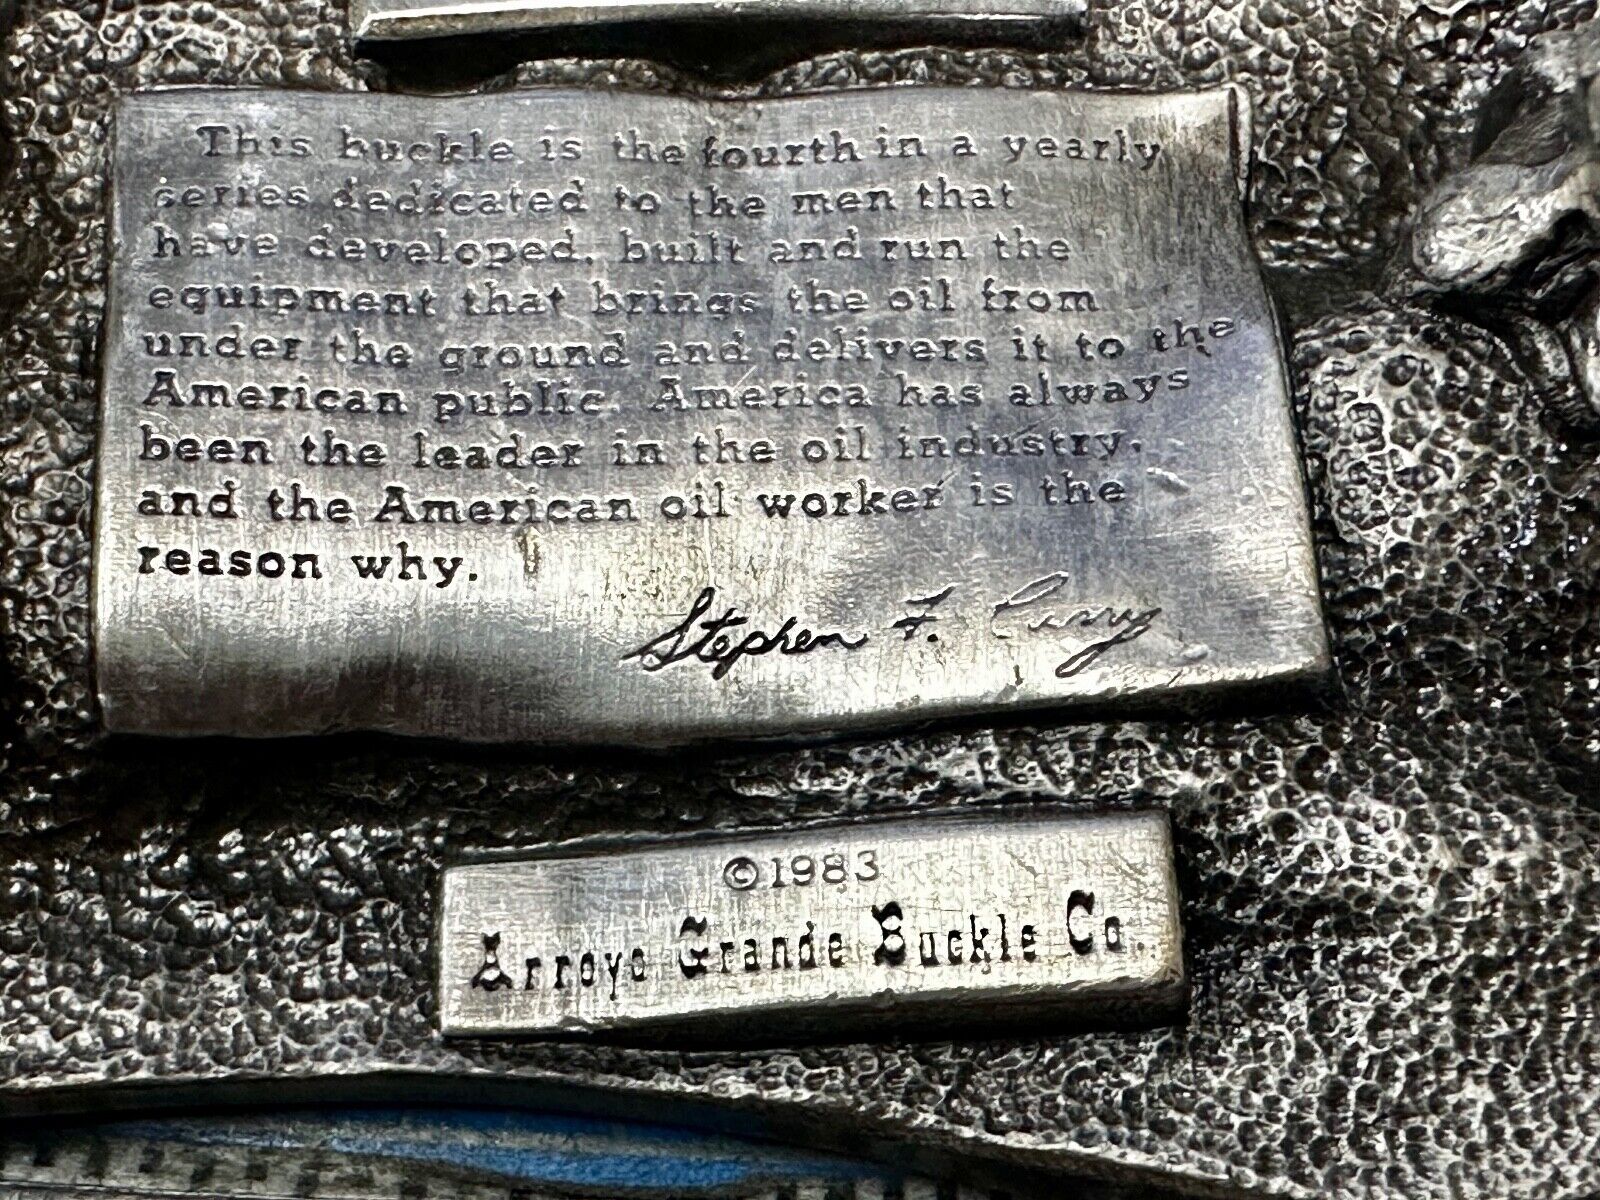 This buckle is the fourth in a yearly
series dedicated to the men that
have developed, built and run the
equipment that brings the oil from
under the ground and delivers it to the
American public. America has always
been the leader in the oil industry,
and the American oil worker is the
reason why.
Stephen F. Curry
©1983
Arroyo Grande Buckle Co.